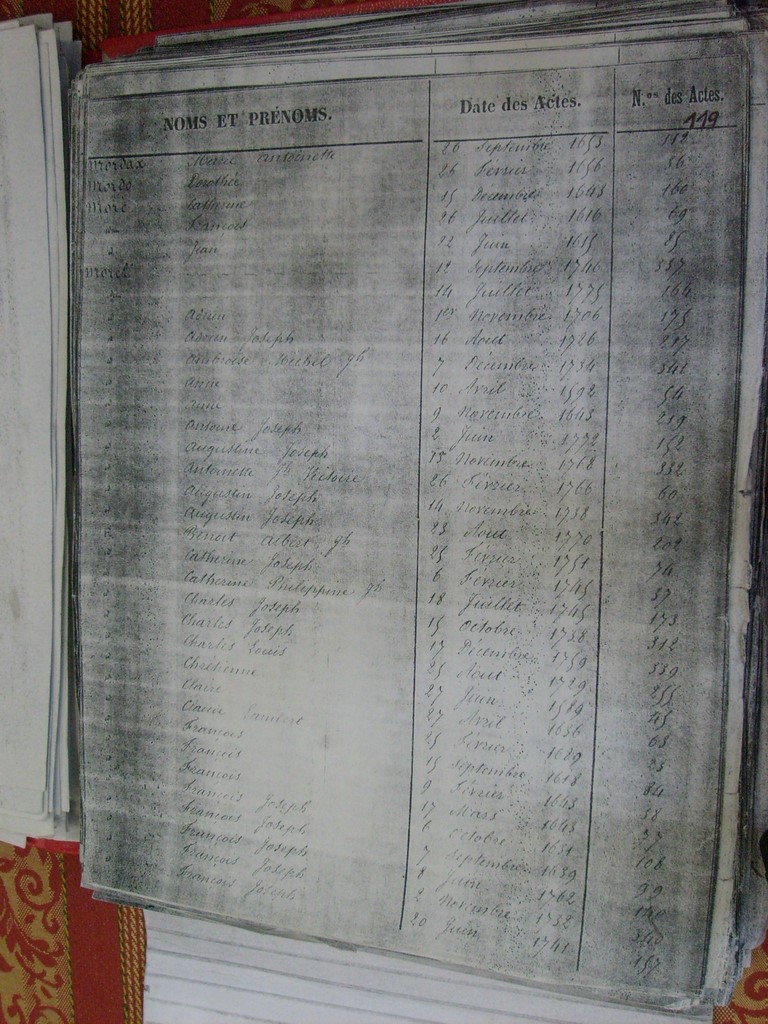 NOMS ET PRÉNOMS. Date des Actes. N.os des Actes.
119
Mordax Marie Antoinette 26 Septembre 1653 112
Mordo Dorothée 26 Février 1656 56
Moré Catherine 15 Decembre 1643 160
" François 26 Juillet 1616 69
" Jean 22 Juin 1615 85
Morel 12 Septembre 1746 337
" 14 Juillet 1775 164
" Adrien 1er Novembre 1706 175
" Adrien Joseph 16 Aout 1726 217
" Ambroise Michel gh 7 Décembre 1734 342
" Anne 10 Avril 1592 54
" Anne 9 Novembre 1643 219
" Antoine Joseph 2 Juin 1772 152
" Augustine Joseph 15 Novembre 1768 332
" Antoinette gh Victoire 26 Février 1766 60
" Augustin Joseph 14 Novembre 1758 342
" Augustin Joseph 23 Aout 1770 202
" Benoit Albert gh 25 Février 1751 74
" Catherine Joseph 6 Février 1745 37
" Catherine Philippine gh 18 Juillet 1745 173
" Charles Joseph 15 Octobre 1738 312
" Charles Joseph 17 Décembre 1759 339
" Charles Louis 25 Aout 1729 255
" Chrétienne 27 Juin 1589 45
" Claire 27 Avril 1656 63
" Lambert 25 Février 1689 23
" François 15 Septembre 1618 84
" François 9 Février 1643 38
" François 17 Mars 1643 77
" François Joseph 6 Octobre 1651 108
" François Joseph 7 Septembre 1689 99
" François Joseph 8 Juin 1762 140
" François Joseph 2 Novembre 1732 340
" François Joseph 20 Juin 1741 157